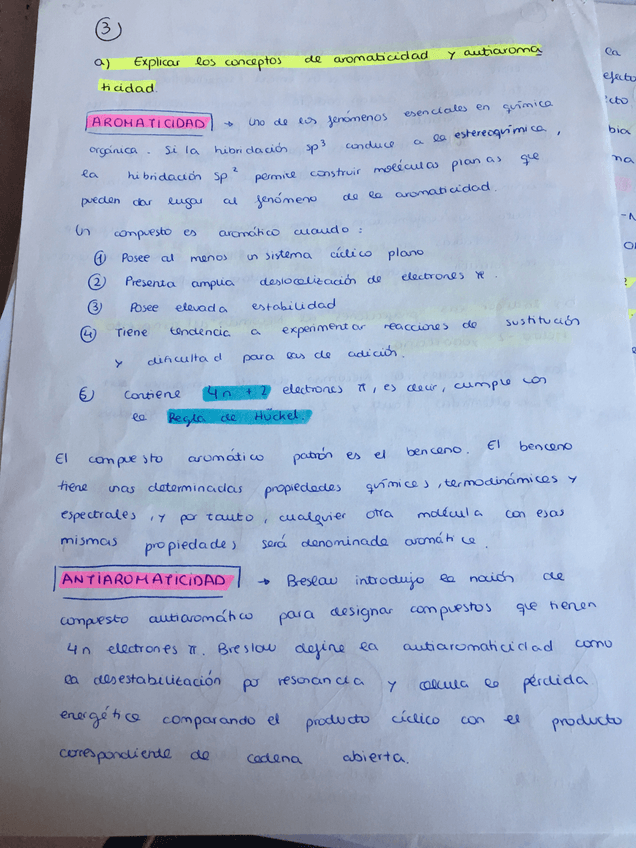 3
a) Explicar los conceptos de aromaticidad y antiaroma
ticidad.
AROMATICIDAD → Uno de los fenómenos esenciales en química
orgánica. Si la hibridación sp³ conduce a la estereoquímica,
la hibridación sp² permite construir moléculas planas que
pueden dar lugar al fenómeno de la aromaticidad.
Un compuesto es aromático cuando:
① Posee al menos un sistema cíclico plano
② Presenta amplia deslocalización de electrones π.
③ Posee elevada estabilidad
④ Tiene tendencia a experimentar reacciones de sustitución
y dificultad para las de adición.
⑤ Contiene 4n + 2 electrones π, es decir, cumple con
la Regla de Hückel.
El compuesto aromático patrón es el benceno. El benceno
tiene unas determinadas propiedades químicas, termodinámicas y
espectrales, y por tanto, cualquier otra molécula con esas
mismas propiedades será denominada aromática.
ANTIAROMATICIDAD → Breslow introdujo la noción de
compuesto antiaromático para designar compuestos que tienen
4n electrones π. Breslow define la antiaromaticidad como
la desestabilización por resonancia y calcula la pérdida
energética comparando el producto cíclico con el producto
correspondiente de cadena abierta.
la
efecto
bia
na